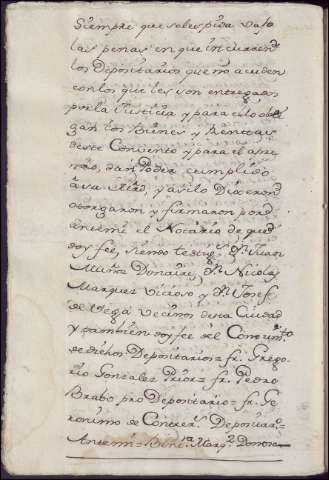 Siempre que seles pida vajo
las penas en que incurren
los Depositarios que no acuden
con los que les son entregados
por la Justicia y para ello obli
gan los Bienes y Rentas
deste Convento y para el apre
mio, dan Poder cumplido
a su Mrd, y asilo Dixeron
otorgaron y firmaron por
antemi el Notario de que
doy fee, siendo testigos Dn Juan
Muñoz Donaire, Dn Nicolas
Marquez Vicioso y Dn Josef
de Vega Vecinos desta Ciudad
y tambien doy fee del Conozimto
de dichos Depositarios = fr. Grego
rio Gonzalez Prior = fr. Pedro
Brabo pro Depositario = fr. Ge
ronimo de Depositar.o =
Antemi = Marq.z